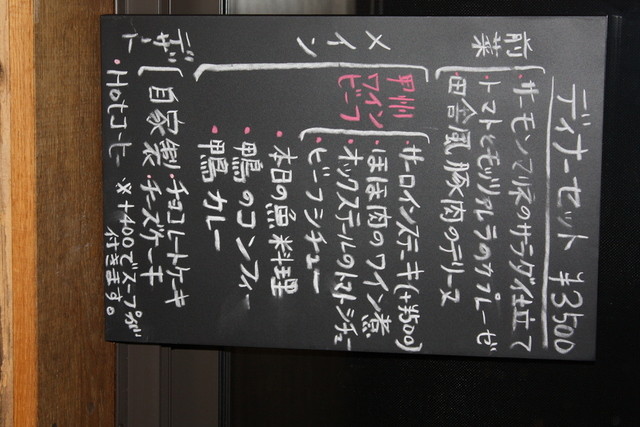 ディナーセット ¥3500
前菜
・サーモンマリネのサラダ仕立て
・トマトとモッツァレラのカプレーゼ
・田舎風豚肉のテリーヌ
メイン
甲州ワインビーフ
・サーロインステーキ(+¥500)
・ほほ肉のワイン煮
・オックステールのトマトシチュー
・ビーフシチュー
・本日の魚料理
・鴨のコンフィー
・鴨カレー
デザート
自家製
・チョコレートケーキ
・チーズケーキ
・Hotコーヒー
※+400でスープが付きます。